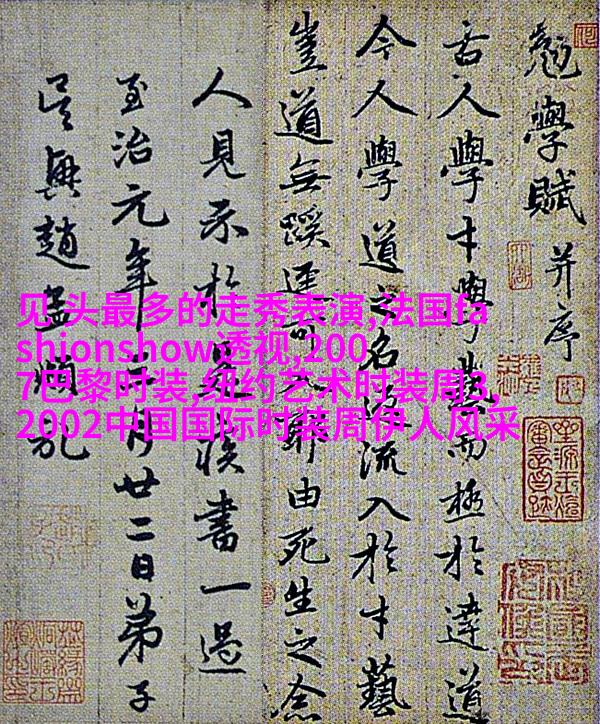 勉學賦并序
古人學才學業而極於達道
今人學道之名流入於才藝
豈道無蹊逕可入耶由死生之念
人見示於疾書一過
至治元年二月廿二日弟子
吳興趙孟頫
见头最多的走秀表演,法国fa
shionshow透视,200
7巴黎时装,纽约艺术时装周3,
2002中国国际时装周伊人风采